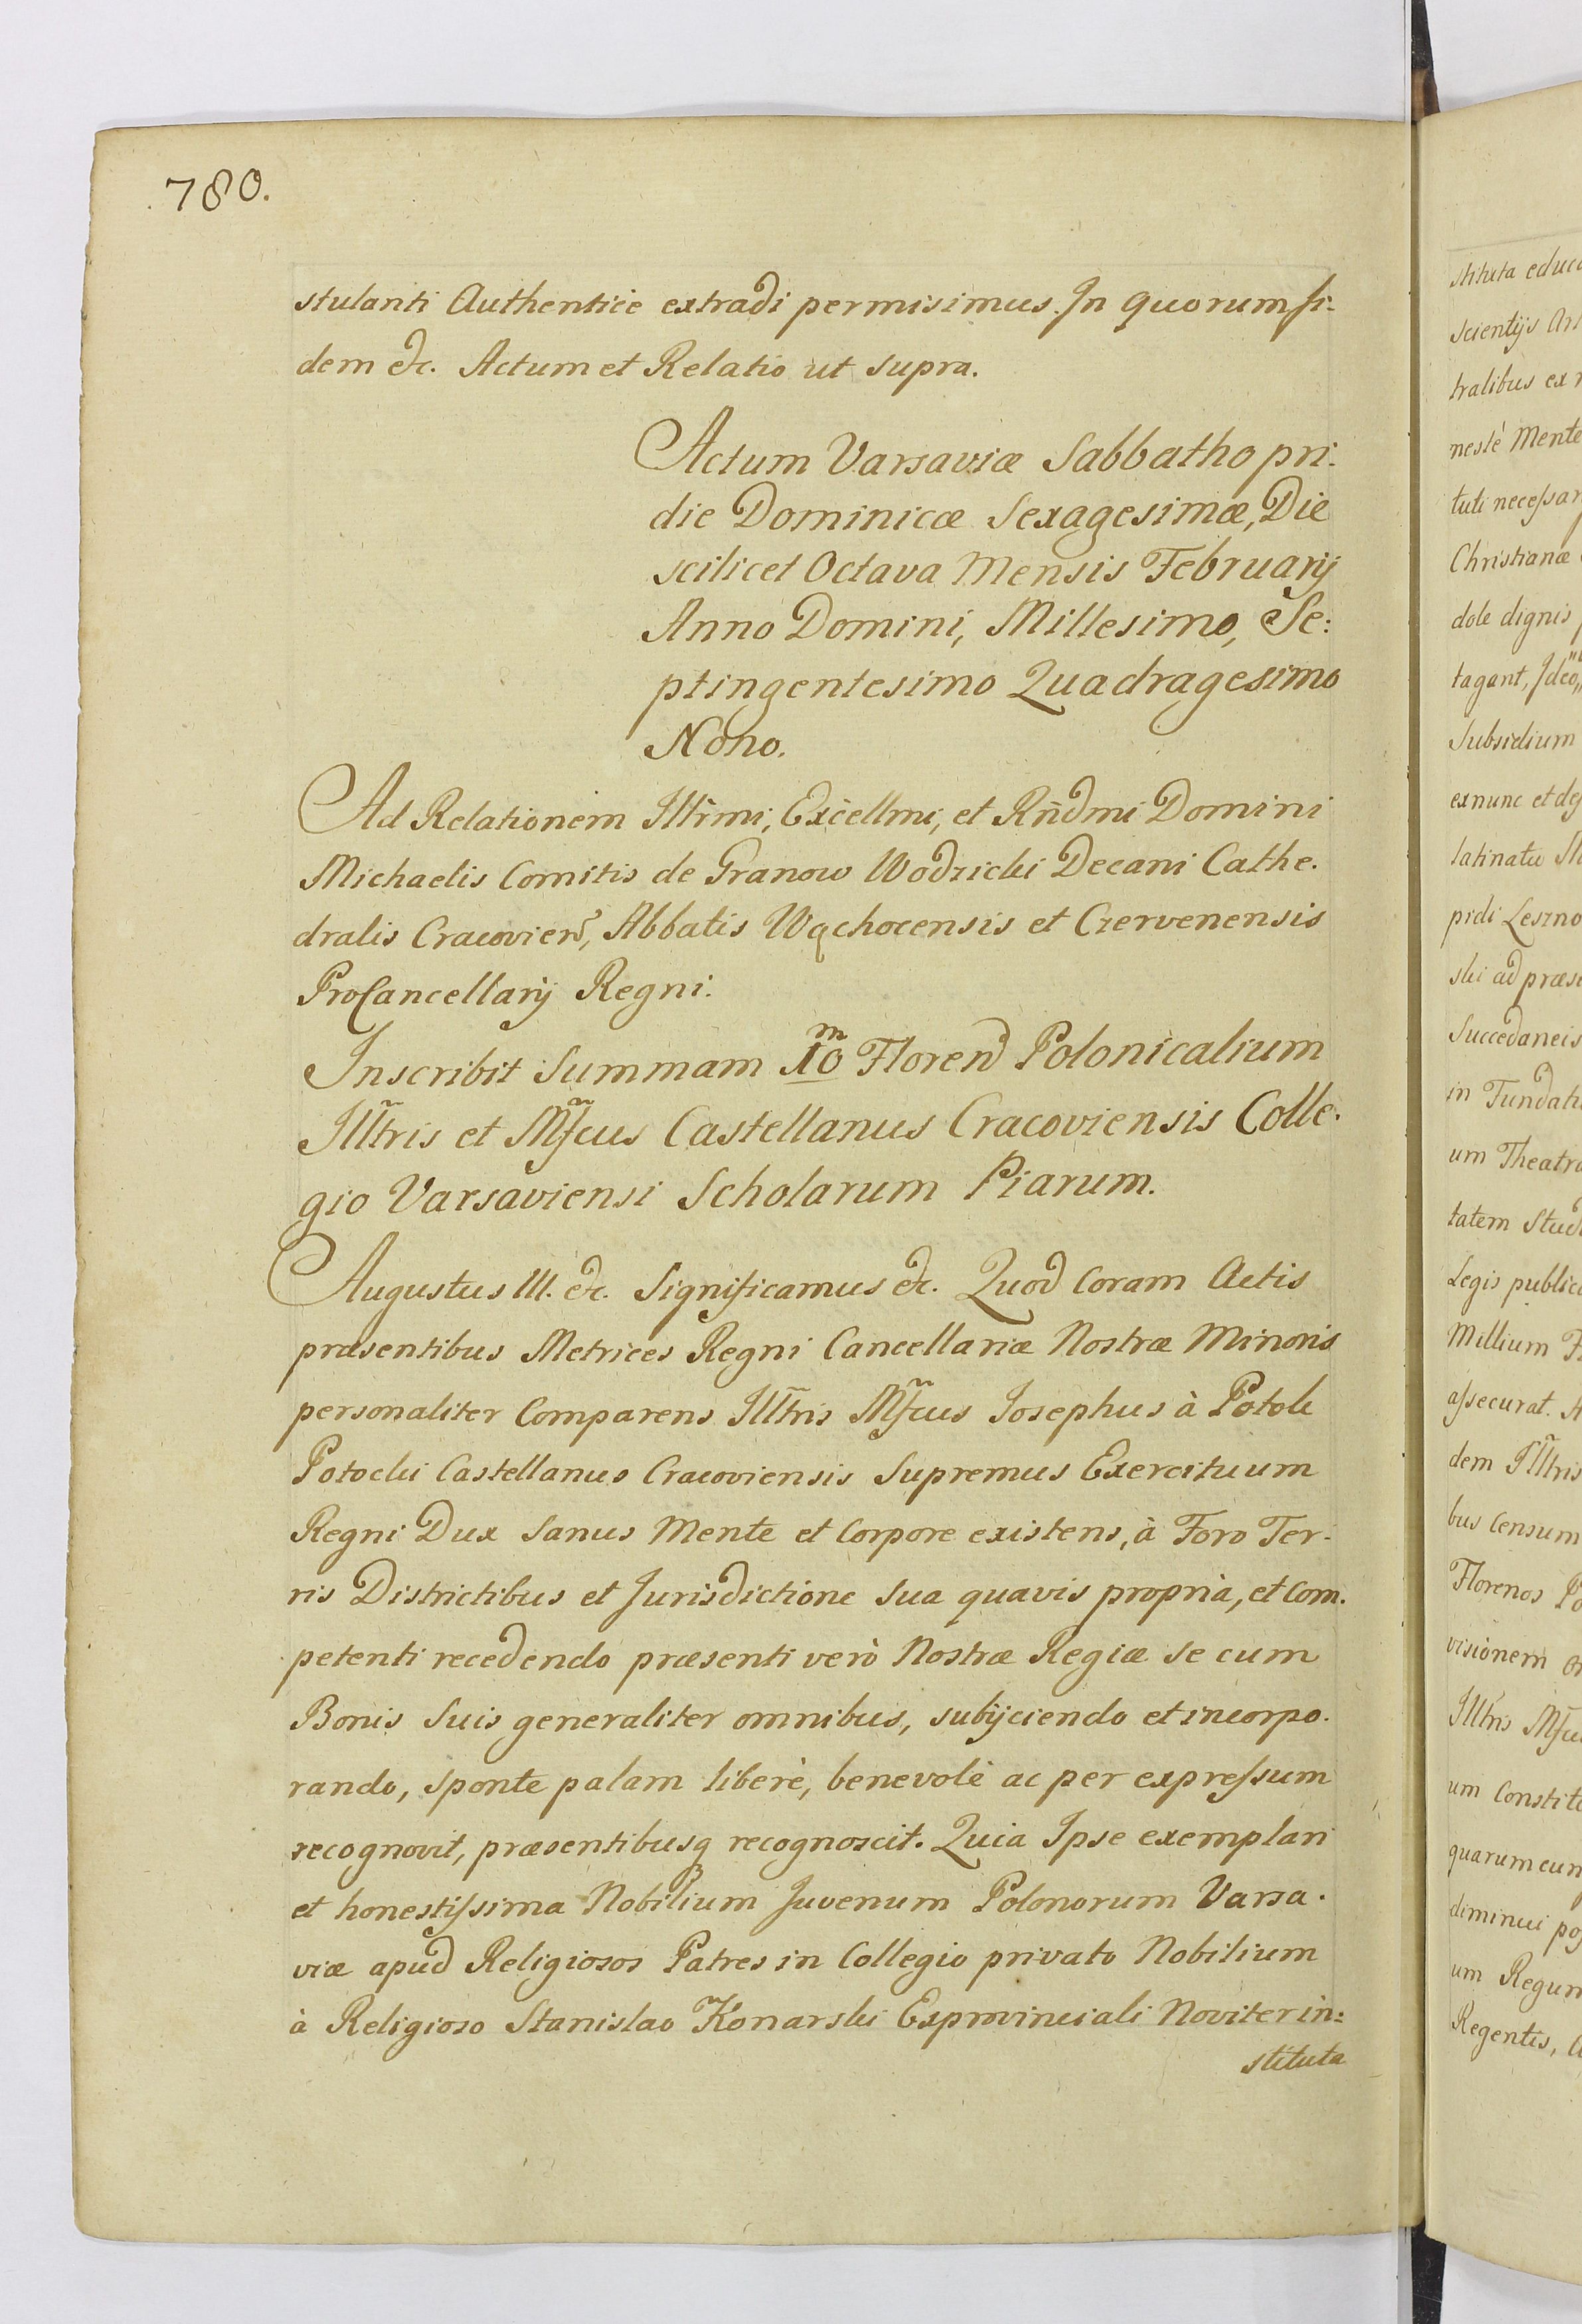 780.
stulanti Authenticè extradi permisimus. In quorum fi-
dem etc. Actum et Relatio ut supra.
Actum Varsaviæ Sabbatho pri-
die Dominicæ Sexagesimæ, Die
scilicet Octava Mensis Februarij
Anno Domini, Millesimo, Se:
ptingentesimo Quadragesimo
Nono.
Ad Relationem Illr̃mi, Excellmi, et Rñdmi Domini
Michaelis Comitis de Granow Wodzicki Decani Cathe-
dralis Cracovien̄, Abbatis Wąchocensis et Czervenensis
ProCancellarij Regni.
Inscribit Summam 10ᵐ Floren̄ Polonicalium
Illt̃ris et Mf̃cus Castellanus Cracoviensis Colle-
gio Varsaviensi Scholarum Piarum.
Augustus III. etc. Significamus etc. Quod Coram Actis
præsentibus Metrices Regni Cancellariæ Nostræ Minoris
personaliter Comparens Illt̃ris Mf̃cus Iosephus à Potok
Potocki Castellanus Cracoviensis Supremus Exercituum
Regni Dux Sanus Mente et Corpore existens, à Foro Ter-
ris Districtibus et Jurisdictione Sua quavis propria, et Com-
petenti recedendo præsenti verò Nostræ Regiæ se cum
Bonis Suis generaliter omnibus, subijciendo et incorpo-
rando, sponte palam liberè, benevolè ac per expressum
recognovit, præsentibusq recognoscit. Quia Ipse exemplari
et honestissima Nobilium Juvenum Polonorum Varsa-
viæ apud Religiosos Patres in Collegio privato Nobilium
à Religioso Stanislao Konarski Exprovinciali Noviter in:
stituta
stituta educa
scientijs Ar
tralibus ex
nestè Mente
tuti necessar
Christianæ
dole dignis
tagant, Ideo
Subsidium
ex nunc et de
latinatu
pidi Leszno
ski ad præse
Succedaneis
in Fundati
um Theatr
tatem Stud
Legis public
Millium F
assecurat. A
dem Illt̃ris
bus Censum
Florenos Po
visionem
Illt̃ris Mf̃cu
um Constit
quarumcun
diminui pos
um Regun
Regentis,